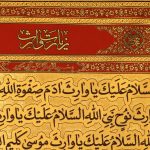 زیارت وارث
اَلسَّلامُ عَلَيْكَ يا وارِثَ آدَمَ صَفْوَةِ اللهِ
وارِثَ نُوحٍ نَبِيِّ اللهِ اَلسَّلامُ عَلَيْكَ يا وارِثَ
اَلسَّلامُ عَلَيْكَ يا وارِثَ مُوسى كَليمِ الله